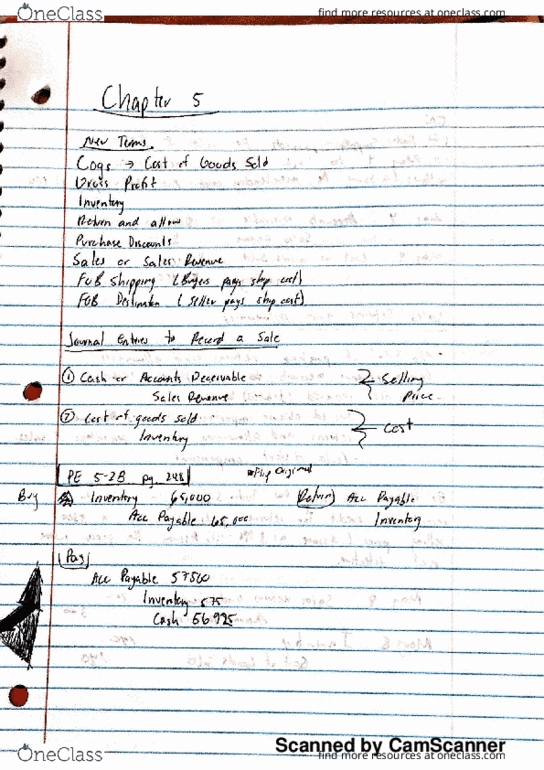 OneClass
find more resources at oneclass.com
Chapter 5
New Terms.
Cogs → Cost of Goods Sold
Gross Profit
Inventory
Return and allow
Purchase Discounts
Sales or Sales Revenue
FOB Shipping (Buyers pays ship cost)
FOB Destination (Seller pays ship cost)
Journal Entries to Record a Sale
① Cash or Accounts Receivable
Sales Revenue
Selling
Price
② Cost of goods sold
Inventory
Cost
PE 5-2B pg. 248
*Flip Original
Buy
Inventory 65,000
Acc Payable 65,000
Return Acc Payable
Inventory
Pay
Acc Payable 57500
Inventory 575
Cash 56925
Scanned by CamScanner
OneClass
find more resources at oneclass.com